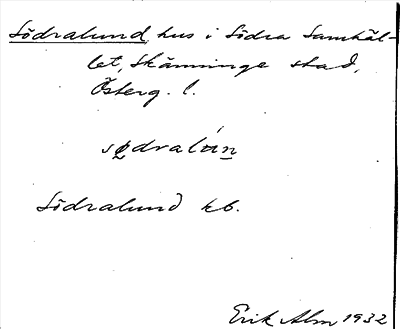 Södralund, hus i Södra Samhäl-
let, Skänninge stad,
Österg. l.
Södralund kb.
Erik Alm 1932